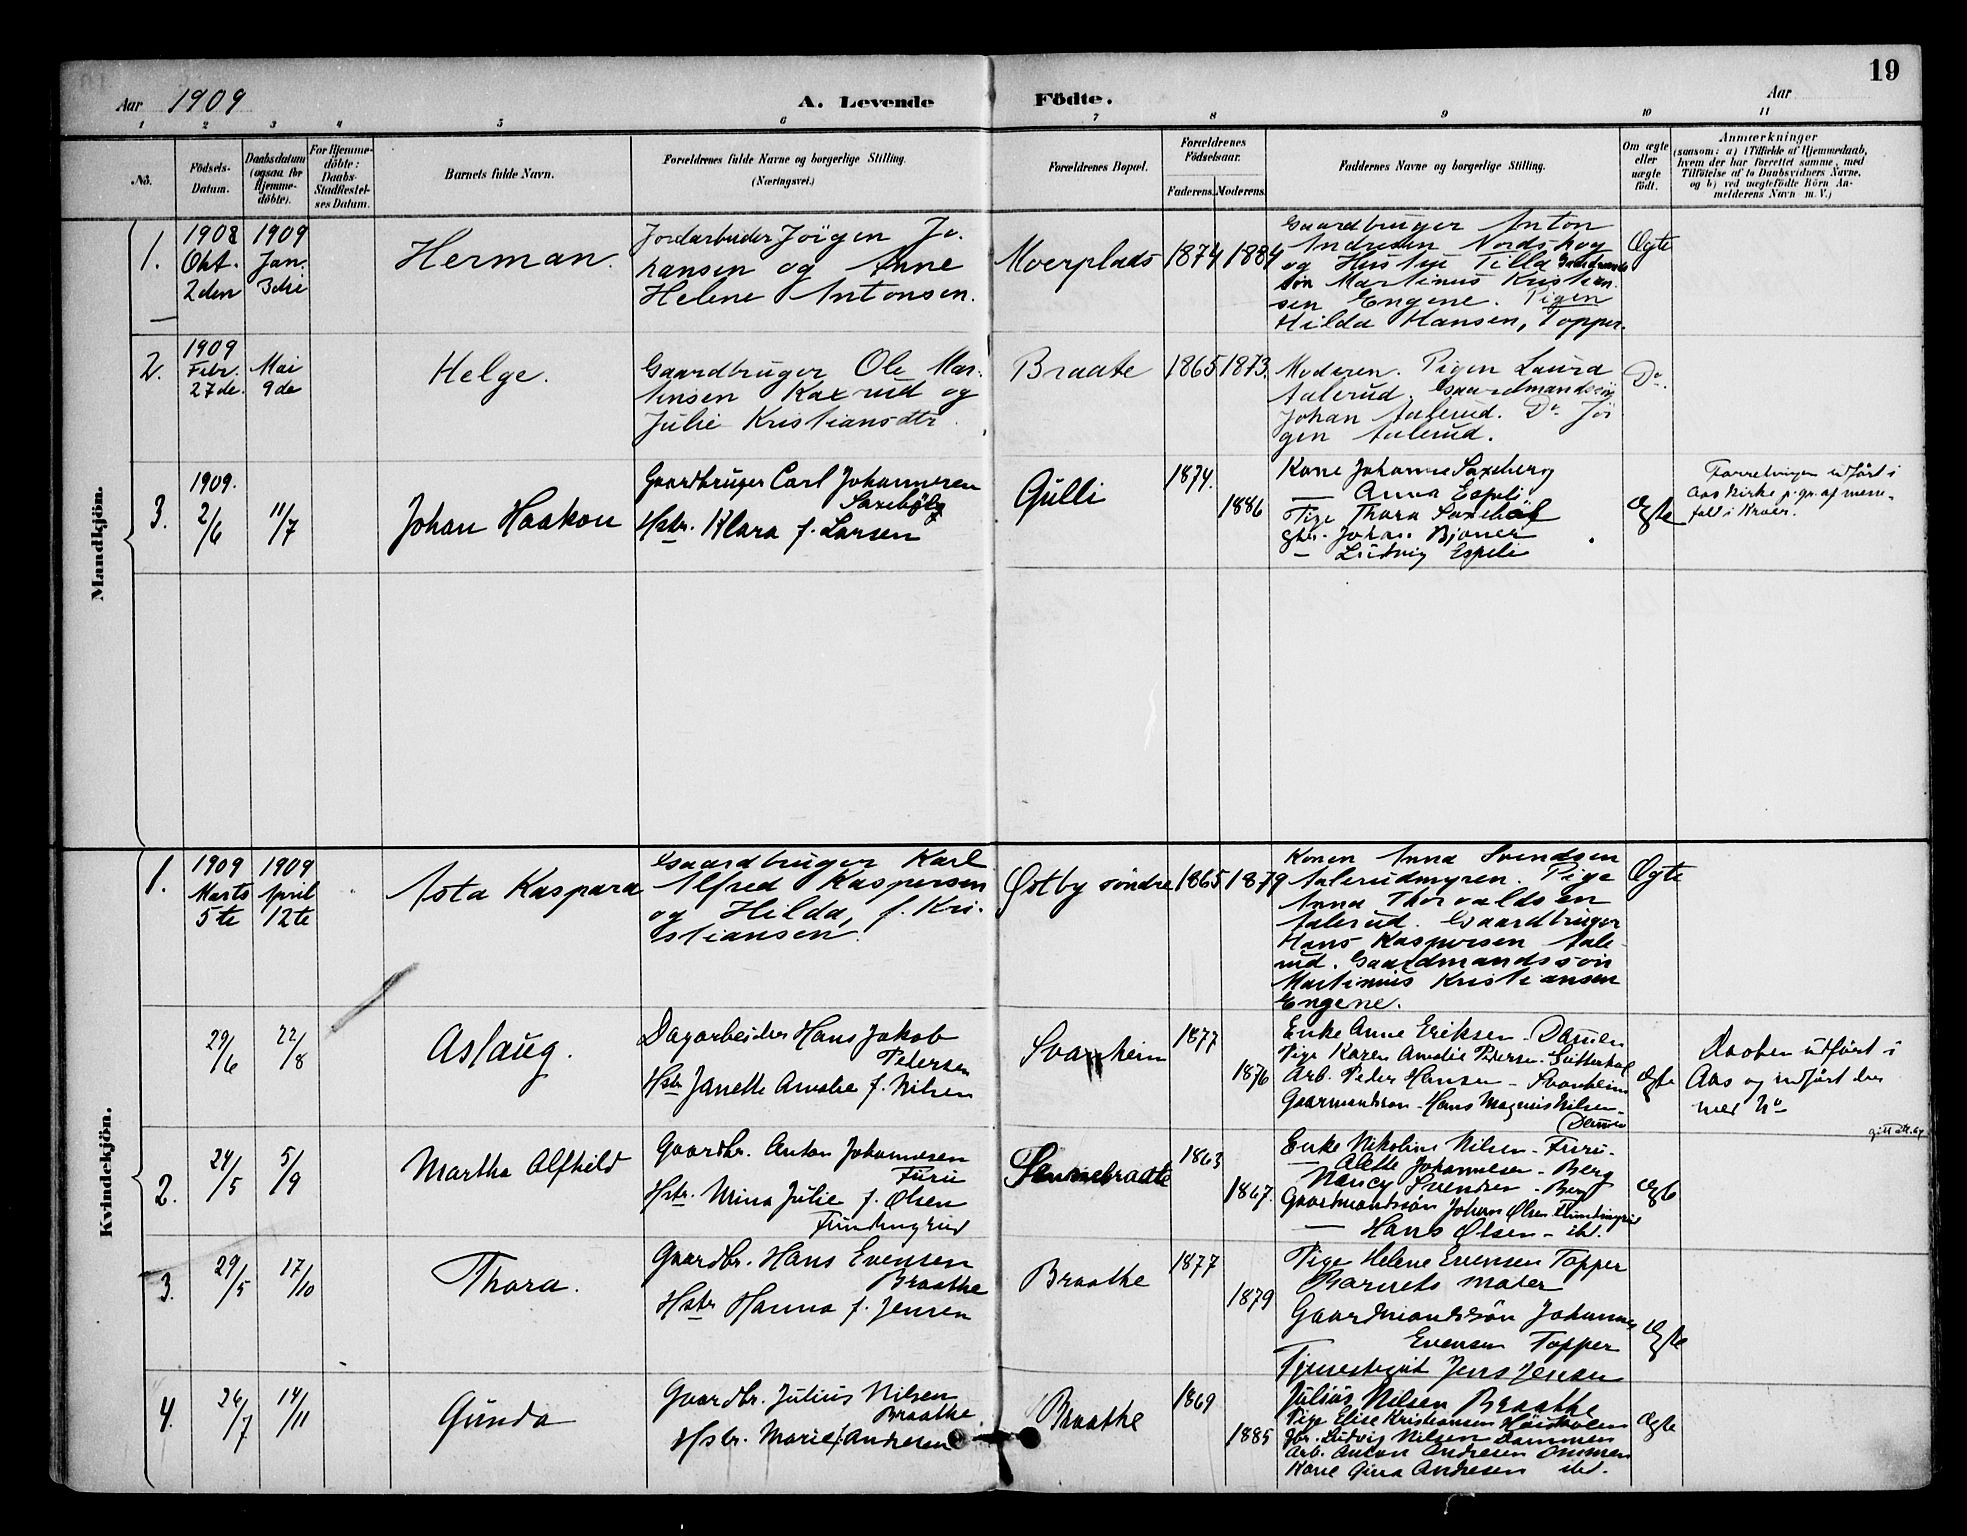 19
Aar 1909
A. Levende Födte.
Aar
1 2 3 4 5 6 7 8 9 10 11
No.
Födsels-
Datum.
Daabsdatum
(ogsaa for
Hjemme-
döbte).
For Hjemme-
döbte:
Daabs-
Stadfæstel-
ses Datum.
Barnets fulde Navn.
Forældrenes fulde Navne og borgerlige Stilling.
(Næringsvei.)
Forældrenes Bopæl.
Forældrenes
Födselsaar.
Faderens. Moderens.
Faddernes Navne og borgerlige Stilling.
Om ægte
eller
uægte
født.
Anmærkninger
(saasom: a) i Tilfælde af Hjemmedaab,
hvem der har forrettet samme, med
Tilføielse af to Daabsvidners Navne,
og b) ved uægtefödte Börn An-
melderens Navn m. V.)
Mandkjön.
1.
1908
Okt.
2den
1909
Jan.
3die
Herman.
Jordarbeider Jörgen Jo-
hansen og Anne
Helene Antonsen.
Moerplads
1874 1884
Gaardbruger Anton
Andresen Nordskog
og Hustru Tilla Gaardmands
søn Martinus Kristian
sen Engene. Pigen
Hilda Hansen, Topper.
Ægte
2.
1909
Febr.
27de.
Mai
9de
Helge.
Gaardbruger Ole Mar-
tinsen Kaxrud og
Julie Kristiansdtr.
Braate
1865 1873.
Moderen. Pigen Laura
Aalerud. Gaardmandssön
Johan Aalerud. Do Jör
gen Aalerud.
Do.
3.
1909.
2/6
11/7
Johan Haakon
Gaardbruger Carl Johannesen
Saxebøl
Hstr. Klara f. Larsen
Gulli
1874.
1886
Kone Johanne Saxeberg
— Anna Espeli
Pige Thora Saxebøl
gbr. Johan Bjoner
— Ludvig Espeli
Ægte
Forretningen udført i
Aas Kirke p. gr. af
fald i Kraer.
Kvindekjön.
1.
1909
Marts
5te
1909
April
12te
Asta Kaspara
Gaardbruger Karl
Alfred Kaspersen
og Hilda, f. Kri-
stiansen.
Østby söndre
1865 1879
Konen Anna Svendsen
Aalerudmyren. Pige
Anna Thorvaldsen
Aalerud. Gaardbruger
Hans Kaspersen Aale-
rud. Gaardmandssön
Martinius Kristiansen
Engene.
Ægte
29/6
22/8
Aslaug.
Dagarbeider Hans Jakob
Pedersen
Hstr Janette Amalie f. Nilsen
Svanheim
1877
1876
Enke Anne Eriksen - Damen
Pige Karen Amalie Pedersen -
Arb. Peder Hansen - Svanheim
Gaarmandssøn Hans Magnus Nilsen -
Damen
Ægte
Daaben udført i
Aas og indført der
med No
2.
24/5
5/9
Martha Alfhild
Gaardbr. Anton Johannesen
Furu
Hstr. Mina Julie f. Olsen
Fundingrud
1863
1867.
Enke Nikoline Nilsen - Furu -
— Alette Johannesen - Berg
Nancy Svendsen - Berg
Gaardmandssøn Johan Olsen Fundingrud
— Hans Olsen - ibd.
Ægte
3.
29/5
17/10
Thora.
Gaardbr. Hans Evensen
Braathe
Hstr Hanna f. Jensen
Braathe
1877
1879
Pige Helene Evensen Topper
Barnets Moder
Gaardmandssøn Johannes
Evensen Topper
Tjenestegut Jens Jensen
Ægte
4.
26/7
14/11
Gunda
Gaardbr. Julius Nilsen
Braathe.
Hstr. Marie f. Andresen
Braathe
1869
1885
Julius Nilsen Braathe
Pige Elise Kristiansen
Gbr. Ludvig Nilsen Dammen
Arb. Anton Andresen
Kone Gina Andresen ibd.
Ægte